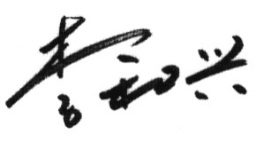 李和兴